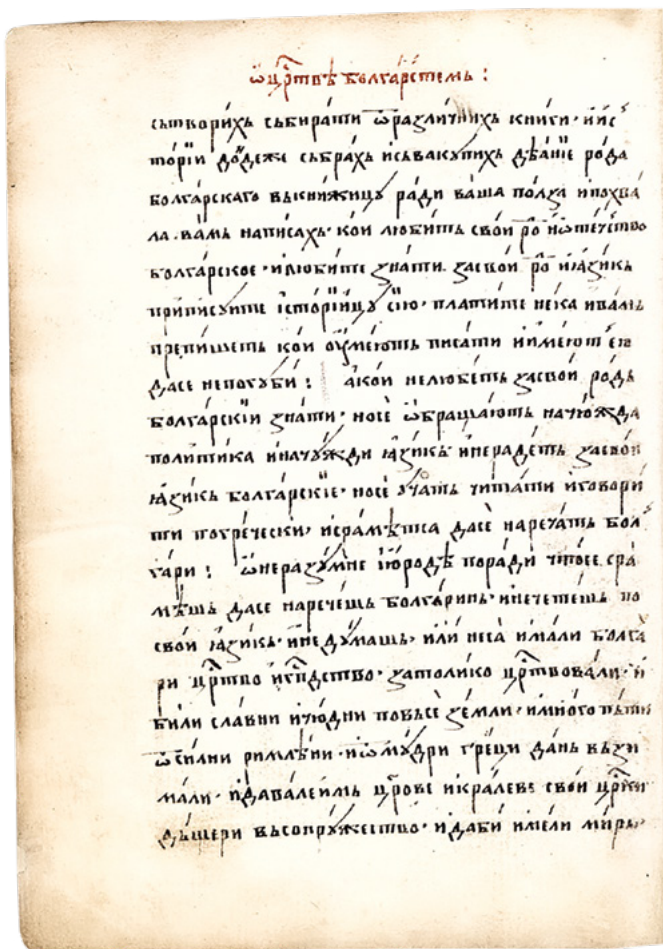 ѡ црⷭ҇твѣ болга́рстемь :
сътвори́хъ събира́ти ѿразли́чнихъ книги · ииⷭ҇
то́рїи до́деже събра́хъ исъвакꙋпихъ дѣа́нїе ро́да
болга́рскаго вькни́жицꙋ ра́ди ва́ша по́лꙁа ипохва́
ла · ва́мь написа́хъ · кои лю́бить сво́и роⷣ ио҆те́чьство
болга́рское · илю́бите ꙁна́ти ꙁасво́и роⷣ иѧ҆ꙁи́кь
припи́сꙋите їсто́рїицꙋ сїю · плати́те не́ка ива́мь
препи́шеть ко́и ѹ҆ме́ють писа́ти ииме́ють ею
да́се непогꙋби : а҆ко́и нелю́беть ꙁасво́и ро́дь
болга́рскїи ꙁна́ти · носе ѡ҆браща́ють начю́жда
поли́тика ина́чꙋжди ѧ҆ꙁи́кь инера́деть ꙁасво́и
ѧ҆ꙁи́кь болга́рскїе · но́се ѹ҆чать чита́ти иговори́
ти погре́чески исрамѣ́тса да́се наре́чать бол
га́ри : ѡ҆неразꙋ́мне ю҆ро́де пора́ди что́се сра
мѣ́шь да́се наре́чешь болга́ринь · ине́четешь по
сво́и ѧ҆ꙁи́кь · инедꙋ́машь · или́ неса има́ли болга́
ри црⷭ҇тво игⷭ҇пⷣство · ꙁато́лико црⷭ҇твова́ли · и
би́ли сла́вни ичю́дни повьсе ꙁе́мли · имно́го пꙋ́ти
ѿси́лни ри́млѣни · иѿмꙋ́дри гре́ци да́нь вьꙁи
ма́ли · идава́леимь цр҃ове икра́леве сво́и црⷭ҇ки
дъ́щери вьсопрꙋ́жество · ида́би име́ли ми́рь